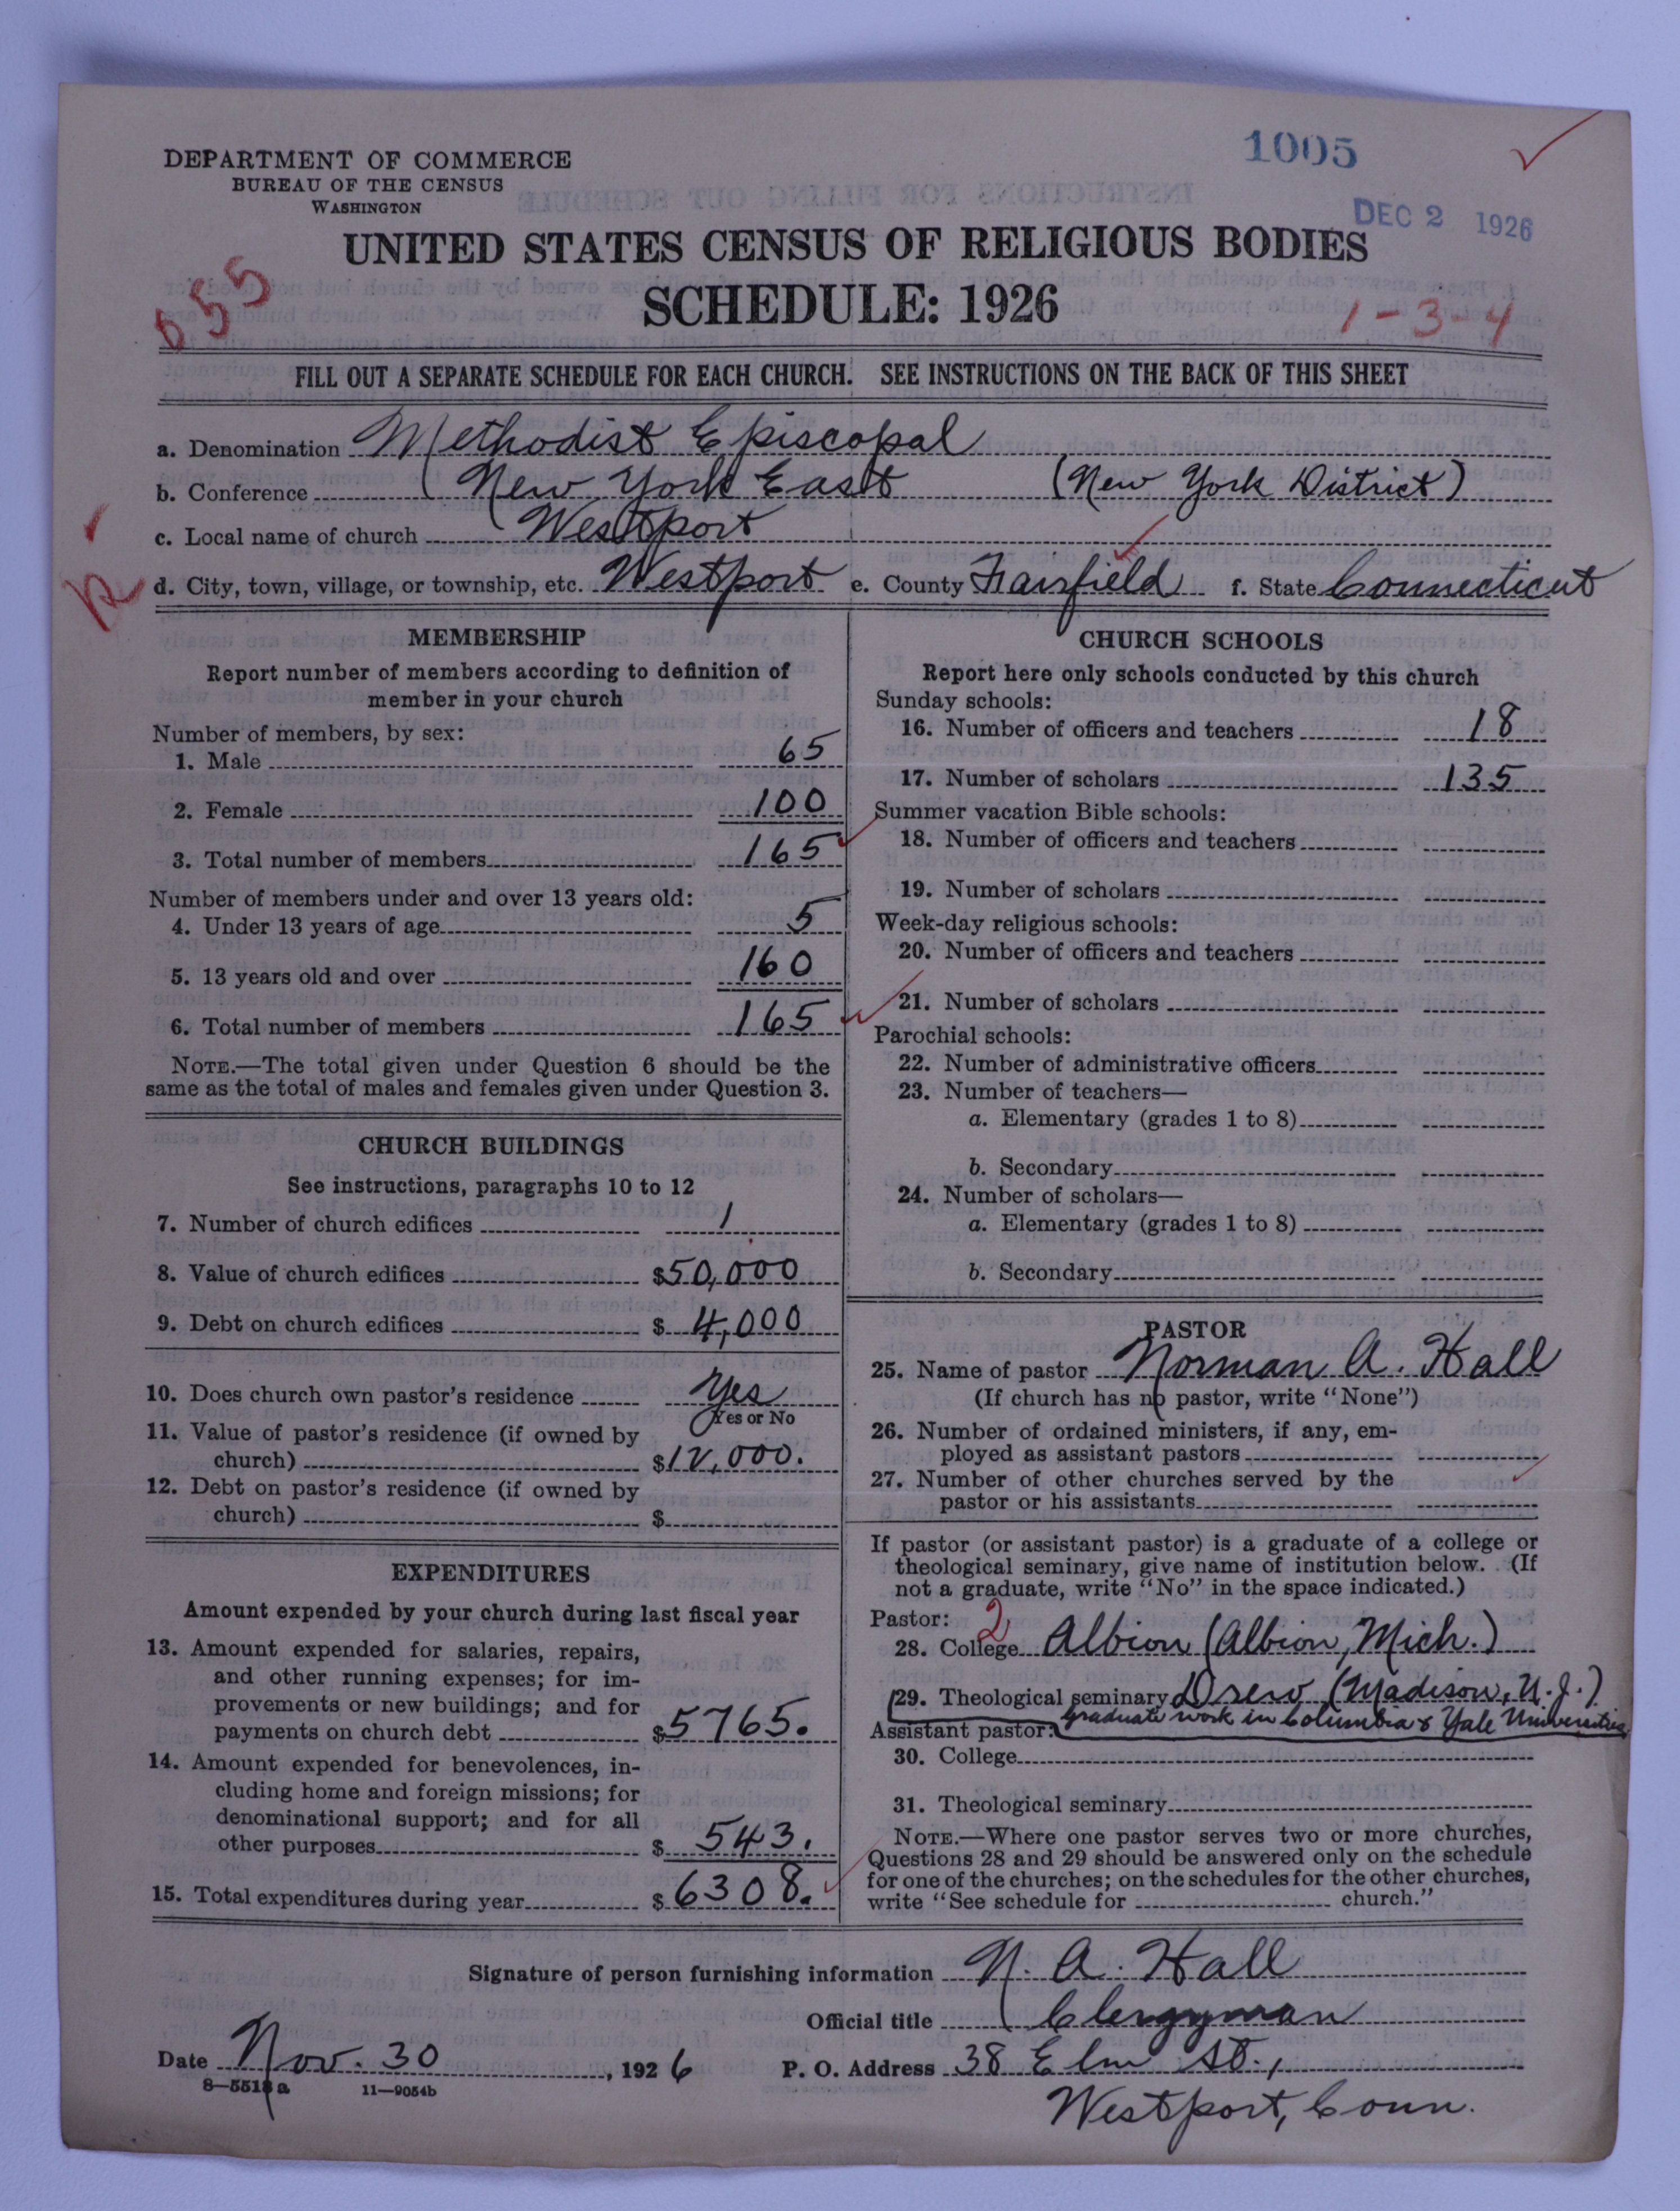 1005
DEPARTMENT OF COMMERCE
BUREAU OF THE CENSUS
WASHINGTON
DEC 2 1926
UNITED STATES CENSUS OF RELIGIOUS BODIES
SCHEDULE: 1926
655
1-3-4
FILL OUT A SEPARATE SCHEDULE FOR EACH CHURCH. SEE INSTRUCTIONS ON THE BACK OF THIS SHEET
a. Denomination Methodist Episcopal
b. Conference New York East (New York District)
c. Local name of church Westport
d. City, town, village, or township, etc. Westport e. County Fairfield f. State Connecticut
MEMBERSHIP
Report number of members according to definition of
member in your church
Number of members, by sex:
1. Male 65
2. Female 100
3. Total number of members 165
Number of members under and over 13 years old:
4. Under 13 years of age 5
5. 13 years old and over 160
6. Total number of members 165
NOTE.—The total given under Question 6 should be the
same as the total of males and females given under Question 3.
CHURCH BUILDINGS
See instructions, paragraphs 10 to 12
7. Number of church edifices 1
8. Value of church edifices $50,000
9. Debt on church edifices $4,000
10. Does church own pastor's residence Yes
Yes or No
11. Value of pastor's residence (if owned by
church) $12,000.
12. Debt on pastor's residence (if owned by
church) $
EXPENDITURES
Amount expended by your church during last fiscal year
13. Amount expended for salaries, repairs,
and other running expenses; for im-
provements or new buildings; and for
payments on church debt $5765.
14. Amount expended for benevolences, in-
cluding home and foreign missions; for
denominational support; and for all
other purposes $543.
15. Total expenditures during year $6308.
CHURCH SCHOOLS
Report here only schools conducted by this church
Sunday schools:
16. Number of officers and teachers 18
17. Number of scholars 135
Summer vacation Bible schools:
18. Number of officers and teachers
19. Number of scholars
Week-day religious schools:
20. Number of officers and teachers
21. Number of scholars
Parochial schools:
22. Number of administrative officers
23. Number of teachers—
a. Elementary (grades 1 to 8)
b. Secondary
24. Number of scholars—
a. Elementary (grades 1 to 8)
b. Secondary
PASTOR
25. Name of pastor Norman A. Hall
(If church has no pastor, write "None")
26. Number of ordained ministers, if any, em-
ployed as assistant pastors
27. Number of other churches served by the
pastor or his assistants
If pastor (or assistant pastor) is a graduate of a college or
theological seminary, give name of institution below. (If
not a graduate, write "No" in the space indicated.)
Pastor: 2
28. College Albion (Albion, Mich.)
29. Theological seminary Drew (Madison, N.J.)
graduate work in Columbia & Yale Universities
Assistant pastor:
30. College
31. Theological seminary
NOTE.—Where one pastor serves two or more churches,
Questions 28 and 29 should be answered only on the schedule
for one of the churches; on the schedules for the other churches,
write "See schedule for church."
Signature of person furnishing information N. A. Hall
Official title Clergyman
Date Nov. 30, 1926 P. O. Address 38 Elm St.,
8—5513a 11—9054b
Westport, Conn.